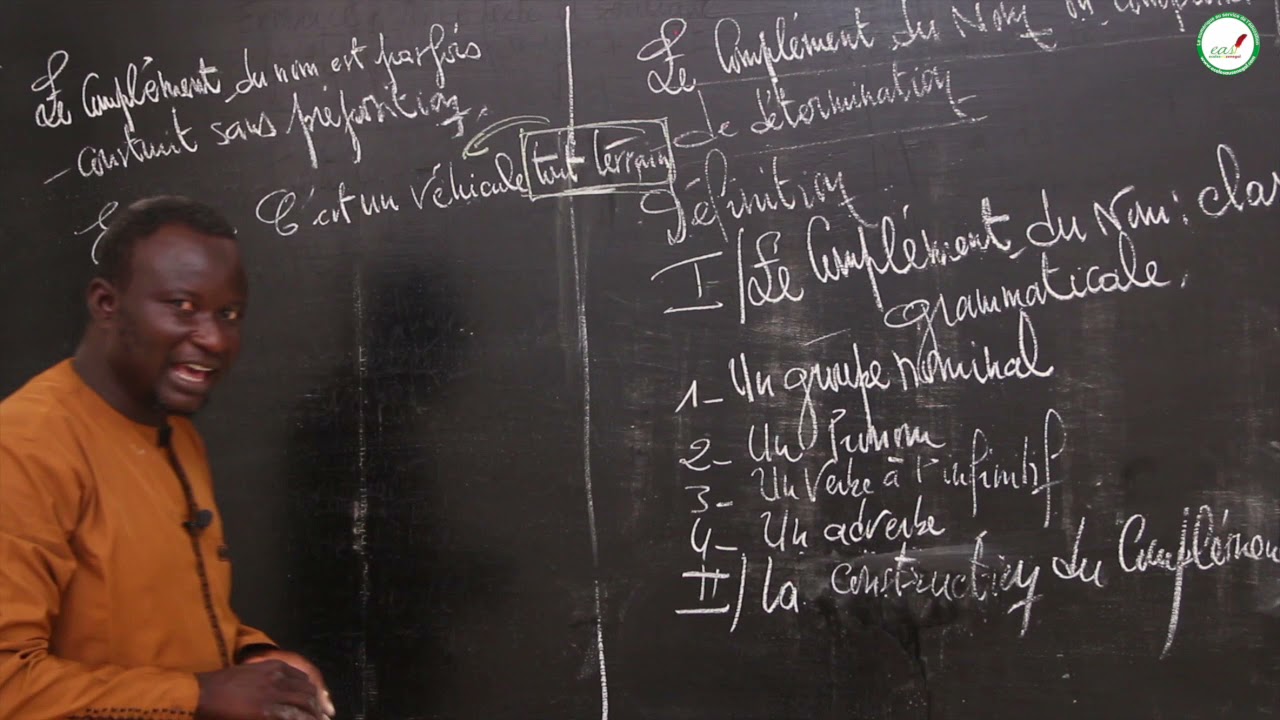 Le Complément du nom est parfois
construit sans préposition,
C'est un véhicule tout terrain
Le Complément du Nom ou
de détermination
Définition
I/ Le Complément du Nom :
grammaticale,
1- Un groupe nominal
2- Un Pronom
3- Un Verbe à l'infinitif
4- Un adverbe
II/ La construction du Complémen
eas